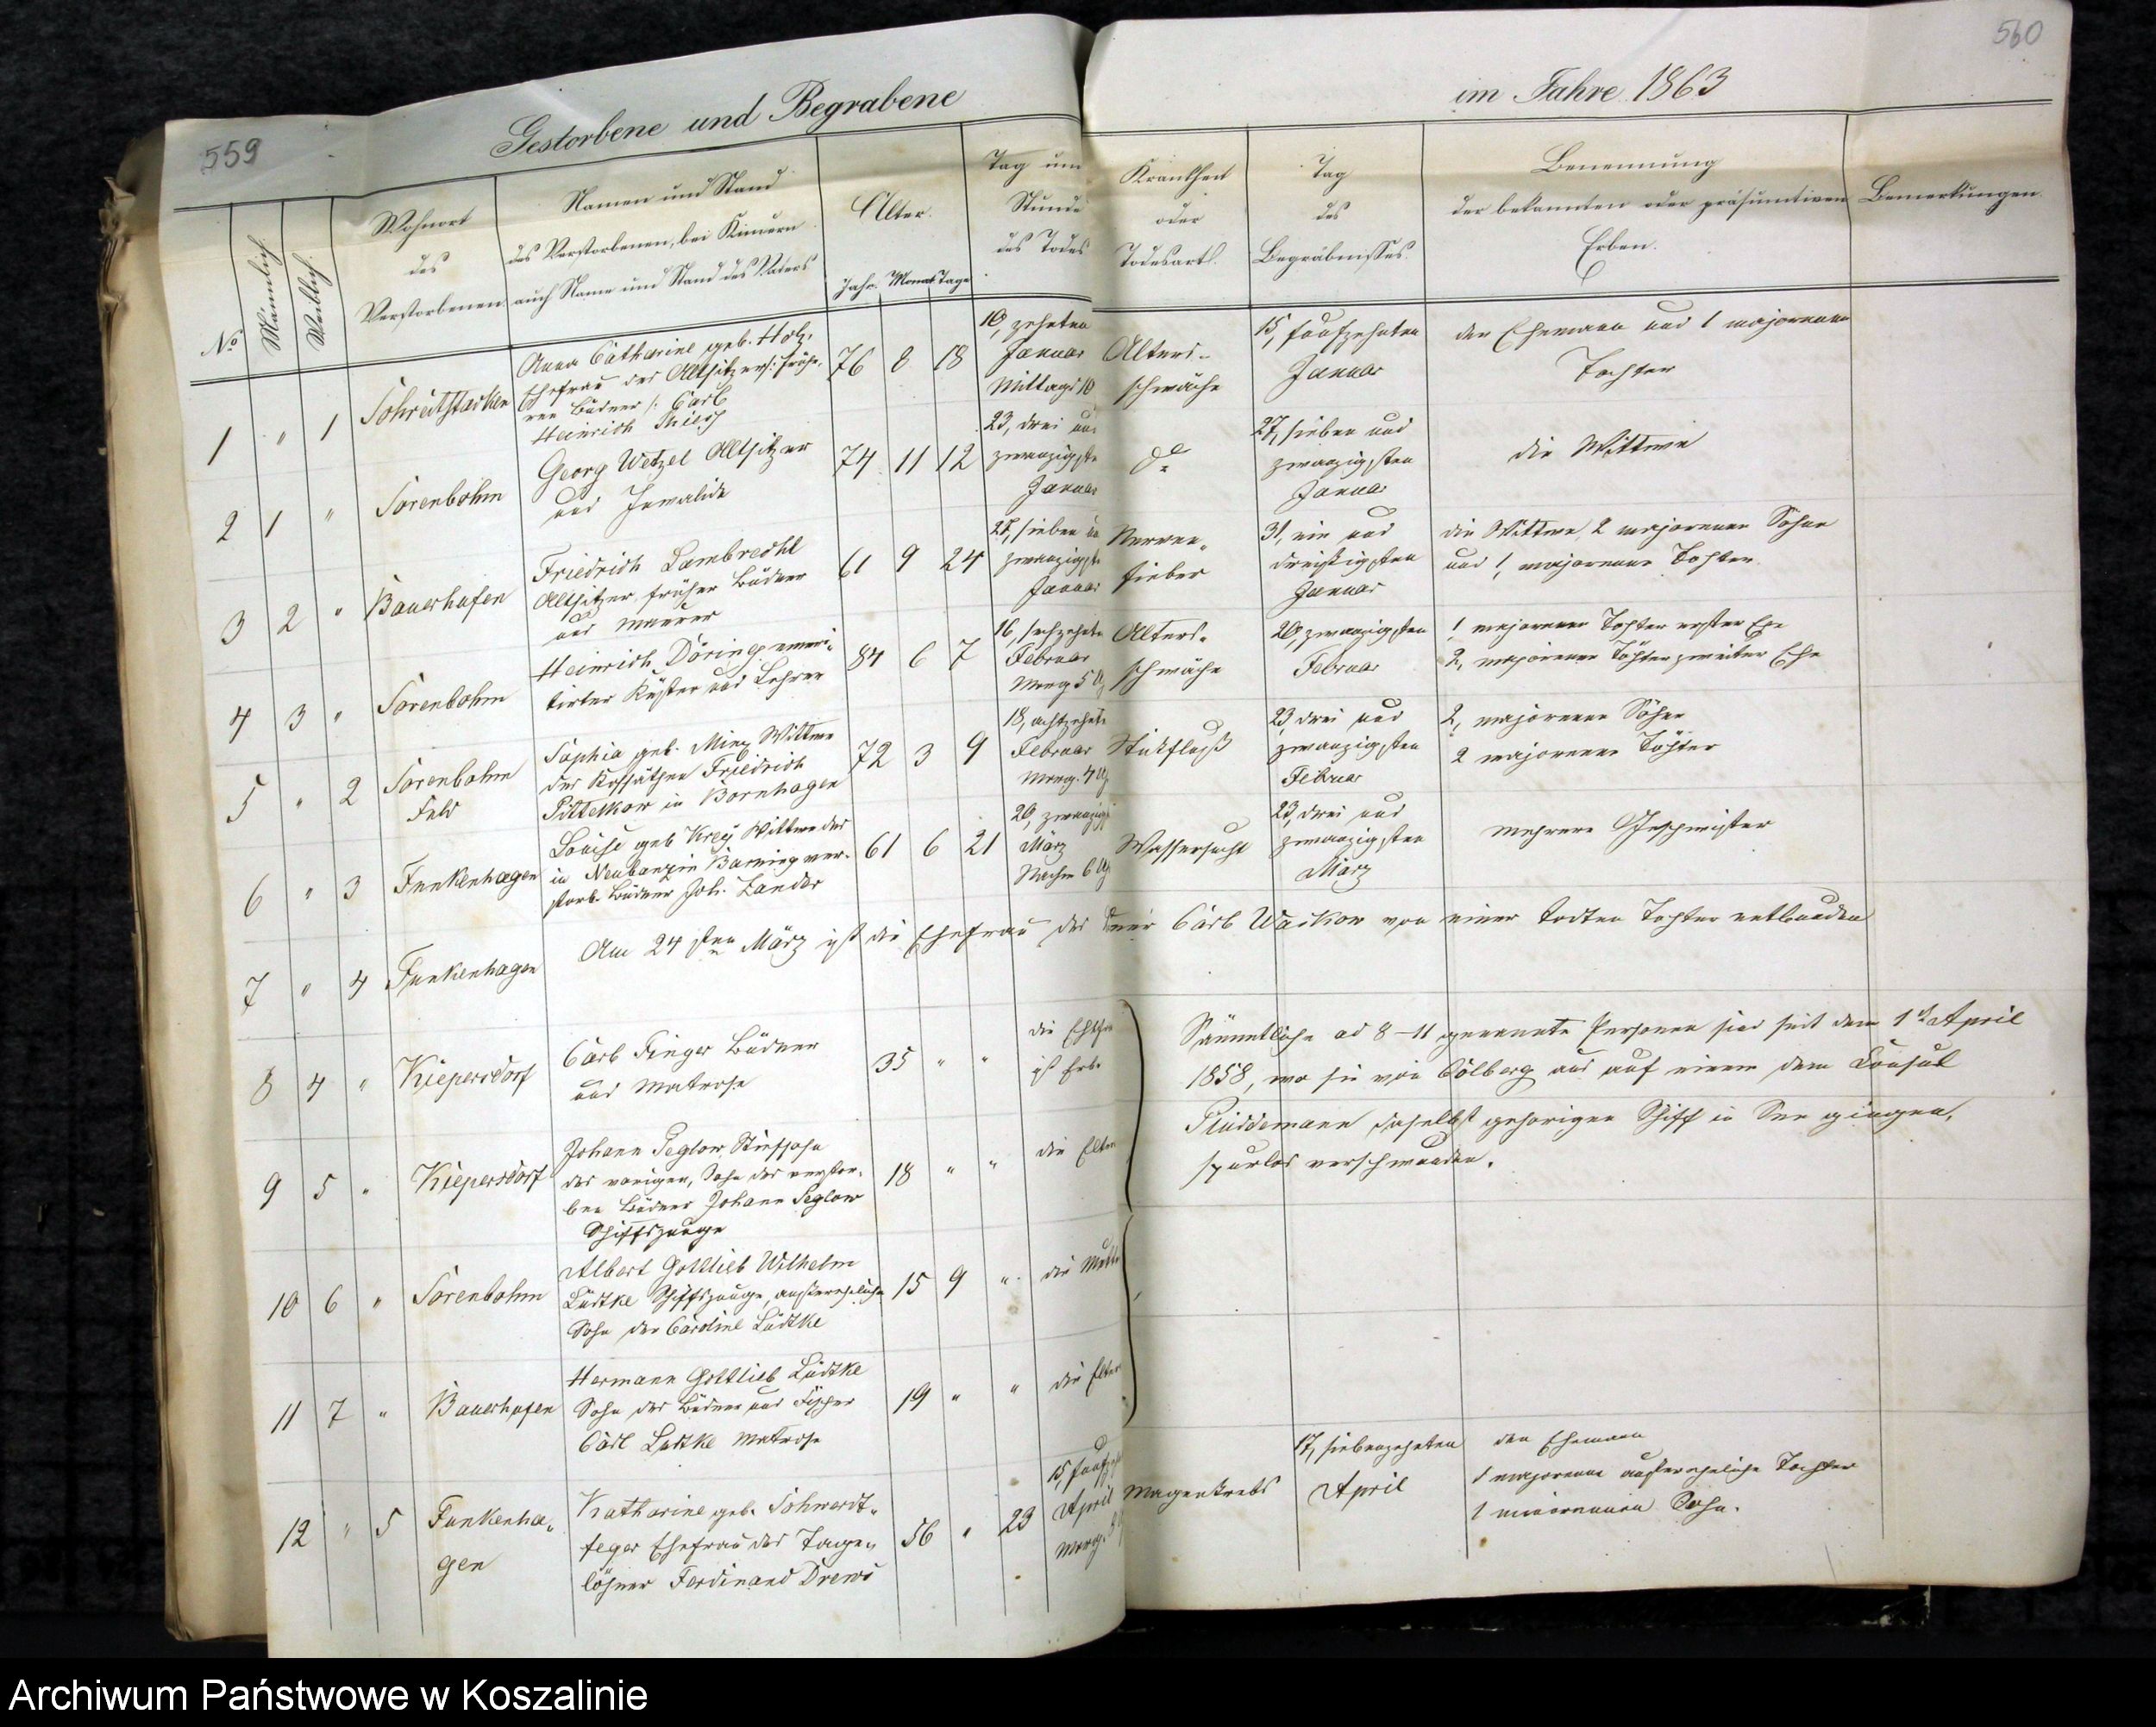 559
Gestorbene und Begrabene
No
Männlich.
Weiblich.
Wohnort
des
Verstorbenen
Namen und Stand
des Verstorbenen, bei Kindern
auch Name und Stand des Vaters
Alter.
Jahr. Monat Tage
Tag un
Stunde
des Todes
1 " 1 Schreitstacken
Anna Catharine geb. Holz,
Ehefrau des Altsitzers /: frühe-
ren Büdner :/ Carl
Heinrich
76 8 18
10, zehnten
Januar
Mittags 10
2 1 " Sorenbohm
Georg Wetzel Altsitzer
und Invalide
74 11 12
23, drei und
zwanzigste
Januar
3 2 " Bauerhufen
Friedrich Lambrecht
Altsitzer, früher Büdner
und Maurer
61 9 24
27, sieben un
zwanzigste
Januar
4 3 " Sorenbohm
Heinrich Döring, emeri-
tirter Küster und Lehrer
84 6 7
16, sechzehnte
Februar
Morg 5 U
5 " 2 Sorenbohm
Feld
Sophia geb. Wittwe
des Kossäthen Friedrich
Pittelkow in Bornhagen
72 3 9
18, achtzehnte
Februar
Morg. 4 U
6 " 3 Funkenhagen
Louise geb Krey Wittwe des
in Neubanzin ver-
storb. Büdner Joh. Zander
61 6 21
20, zwanzig
März
Nachm 6 U
7 " 4 Funkenhagen
Am 24sten März ist die Ehefrau des
8 4 " Kiepersdorf
Carl Finger Büdner
und Matrose
35 " "
die Ehefr
ist Erbe
9 5 " Kiepersdorf
Johann Peglow, Stiefsohn
des vorigen, Sohn des verstor-
ben Büdner Johann Peglow
Schiffsjunge
18 " "
die Eltern
10 6 " Sorenbohm
Albert Gottlieb Wilhelm
Lüdtke Schiffsjunge, außereheliche
Sohn der Caroline Lüdtke
15 9 "
die Mutte
11 7 " Bauerhufen
Hermann Gottlieb Lüdtke
Sohn des Büdner und Fischer
Carl Lüdtke Matrose
19 " "
die Elter
12 " 5 Funkenha-
gen
Katharine geb. Schwerdt-
feger Ehefrau des Tage-
löhner Ferdinand Drews
56 " 23
15, fünfzeh
April
Morg.
560
im Jahre 1863
Krankheit
oder
Todesart.
Tag
des
Begräbnisses.
Benennung
der bekannten oder präsumtiven
Erben.
Bemerkungen
Alters-
schwäche
15, fünfzehnten
Januar
der Ehemann und 1 majorenne
Tochter
do
27, sieben und
zwanzigsten
Januar
die Wittwe
Nerven-
fieber
31, ein und
dreißigsten
Januar
die Wittwe, 2 majorenne Söhne
und 1, majorenne Tochter
Alters-
schwäche
20, zwanzigsten
Februar
1 majorenne Tochter erster Ehe
2, majorenne Töchter zweiter Ehe
Stickfluß
23 drei und
zwanzigsten
Februar
2, majorenne Söhne
2 majorenne Töchter
Wassersucht
23, drei und
zwanzigsten
März
mehrere Geschwister
Carl Wackow von einer todten Tochter entbunden
Sämmtliche ad 8-11 genannte Personen sind seit dem 1t April
1858, wo sie von Colberg aus auf einem dem Consul
Plüddemann daselbst gehörigen Schiff in See gingen,
spurlos verschwunden.
Magenkrebs
17, siebenzehnten
April
der Ehemann
1 majorenne außereheliche Tochter
1 minorennen Sohn.
Archiwum Państwowe w Koszalinie